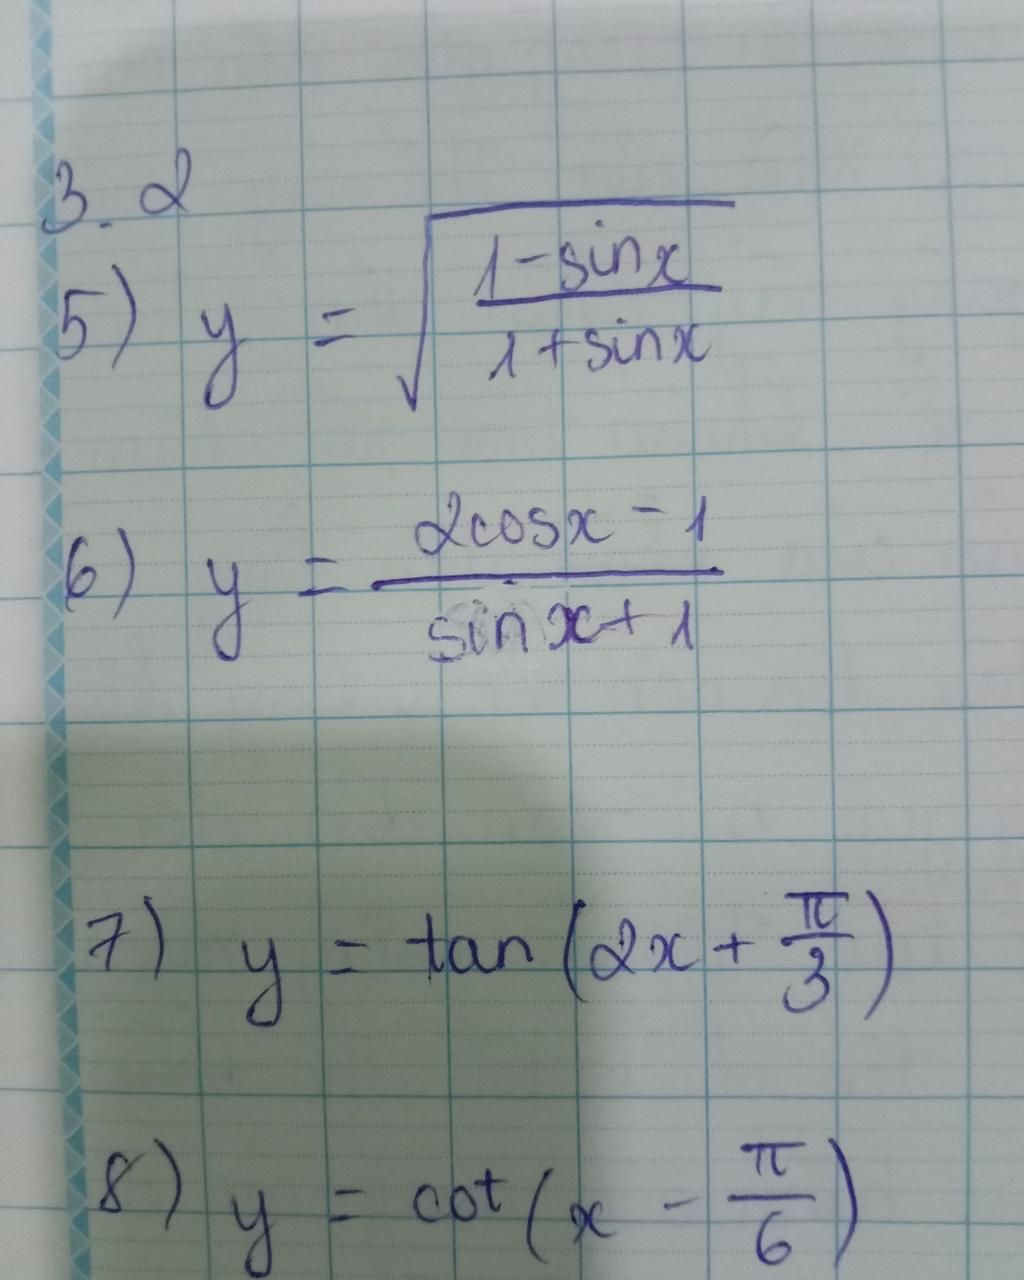 3.2
5) y = √((1-sinx)/(1+sinx))
6) y = (2cosx - 1)/(sinx+1)
7) y = tan(2x + π/3)
8) y = cot(x - π/6)